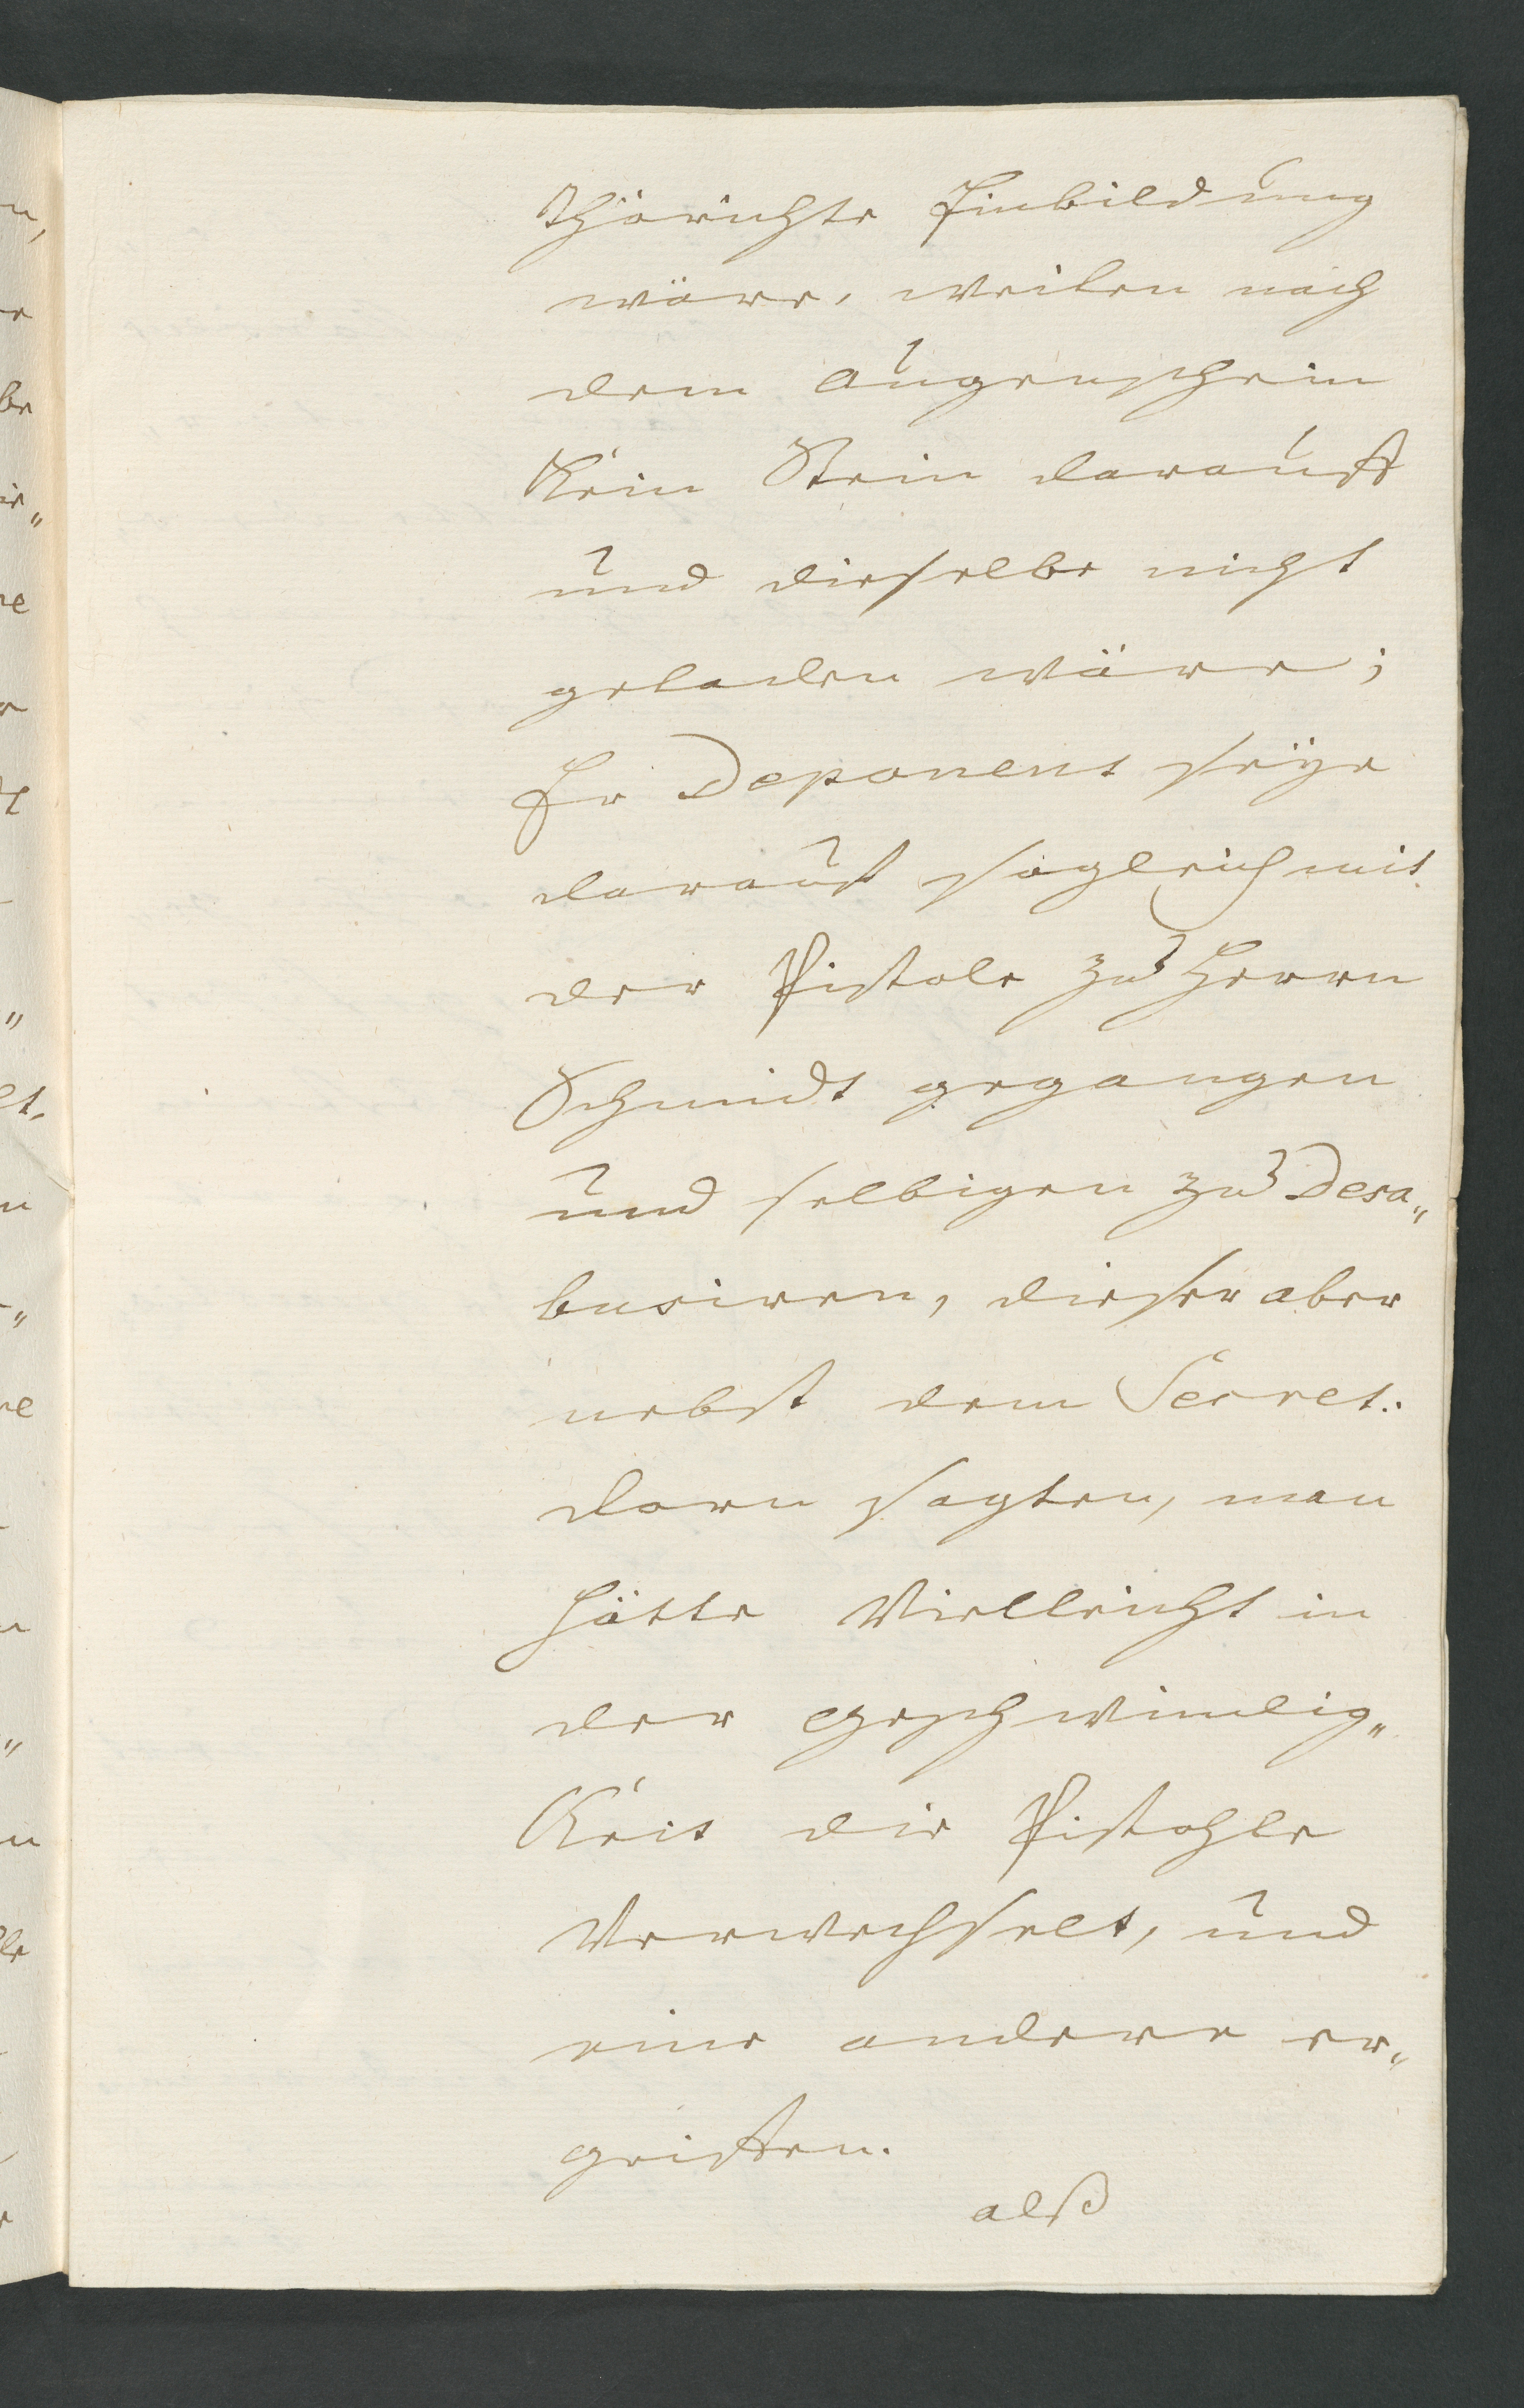 thörichte Einbildung
wäre, weilen nach
dem augenschein
Kein Stein darauff
und dieselbe nicht
geladen wäre;
Er Deponent seÿe
darauf sogleich mit
der Pistole zu Herrn
Schmidt gegangen
und selbigen zu Desa„
busiren, dieser aber
nebst dem Secret.
dorn sagten, man
hätte Vielleicht in
der geschwindig„
Keit die Pistohle
Verwechselt, und
eine andere er„
griffen.
alß